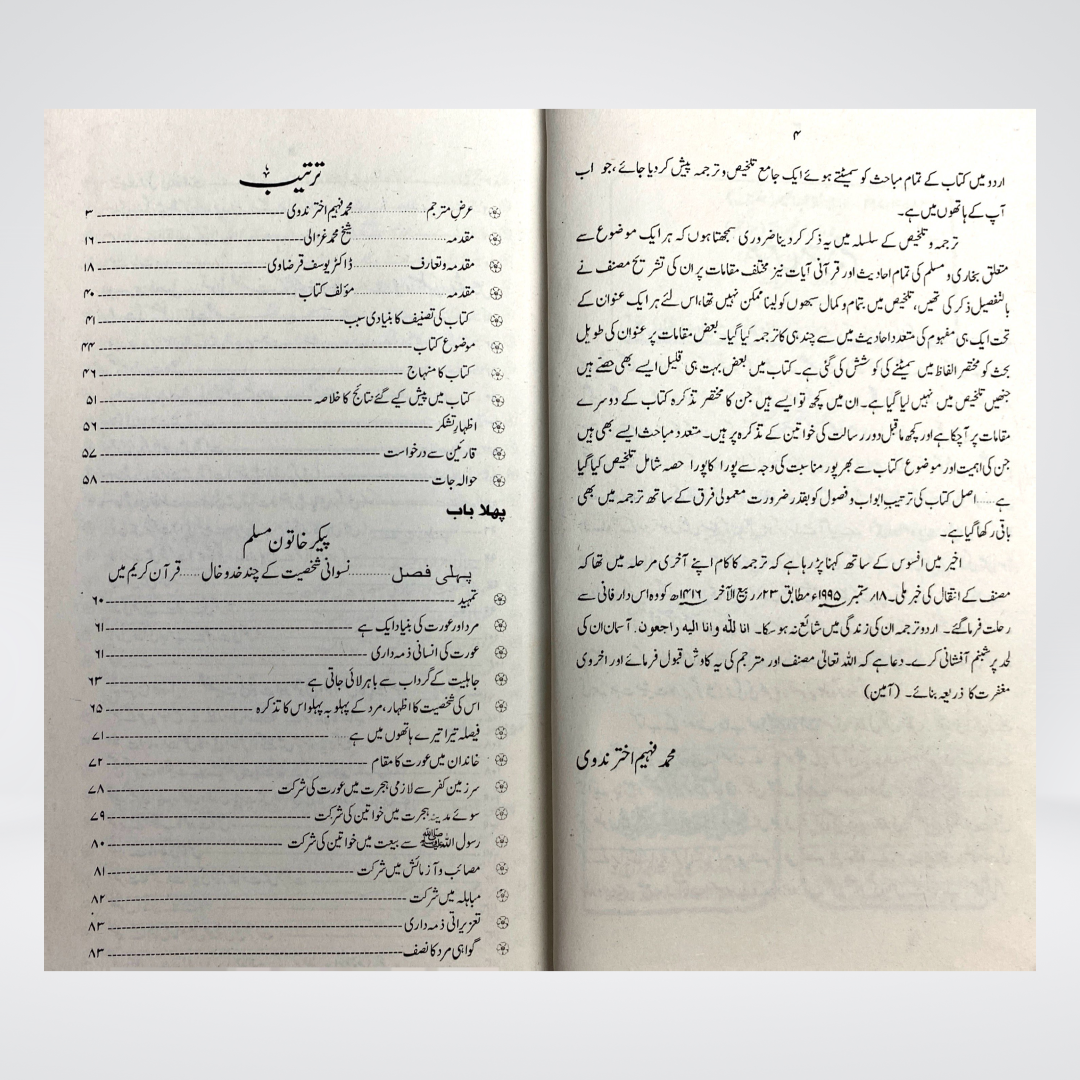 ۴
اردو میں کتاب کے تمام مباحث کو سمیٹتے ہوئے ایک جامع تلخیص و ترجمہ پیش کر دیا جائے، جو اب
آپ کے ہاتھوں میں ہے۔
ترجمہ و تلخیص کے سلسلہ میں یہ ذکر کر دینا ضروری سمجھتا ہوں کہ ہر ایک موضوع سے
متعلق بخاری و مسلم کی تمام احادیث اور قرآنی آیات نیز مختلف مقامات پر ان کی تشریح مصنف نے
بالتفصیل ذکر کی تھیں، تلخیص میں بتمام و کمال سبھوں کو لینا ممکن نہیں تھا، اس لئے ہر ایک عنوان کے
تحت ایک ہی مفہوم کی متعدد احادیث میں سے چند ہی کا ترجمہ کیا گیا۔ بعض مقامات پر عنوان کی طویل
بحث کو مختصر الفاظ میں سمیٹنے کی کوشش کی گئی ہے۔ کتاب میں بعض بہت ہی قلیل ایسے بھی حصّے ہیں
جنھیں تلخیص میں نہیں لیا گیا ہے۔ ان میں کچھ تو ایسے ہیں جن کا مختصر تذکرہ کتاب کے دوسرے
مقامات پر آچکا ہے اور کچھ ماقبل دور رسالت کی خواتین کے تذکرہ پر ہیں۔ متعدد مباحث ایسے بھی ہیں
جن کی اہمیت اور موضوع کتاب سے بھرپور مناسبت کی وجہ سے پورا کا پورا حصہ شامل تلخیص کیا گیا
ہے..... اصل کتاب کی ترتیب ابواب و فصول کو بقدر ضرورت معمولی فرق کے ساتھ ترجمہ میں بھی
باقی رکھا گیا ہے۔
اخیر میں افسوس کے ساتھ کہنا پڑ رہا ہے کہ ترجمہ کا کام اپنے آخری مرحلہ میں تھا کہ
مصنف کے انتقال کی خبر ملی۔ ۱۸؍ ستمبر ۱۹۹۵ء مطابق ۲۳؍ ربیع الآخر ۱۴۱۶ھ کو وہ اس دار فانی سے
رحلت فرما گئے۔ اردو ترجمہ ان کی زندگی میں شائع نہ ہو سکا۔ انا للّٰہ وانا الیہ راجعون۔ آسمان ان کی
لحد پر شبنم آفشانی کرے۔ دعا ہے کہ اللہ تعالیٰ مصنف اور مترجم کی یہ کاوش قبول فرمائے اور اخروی
مغفرت کا ذریعہ بنائے۔ (آمین)
محمد فہیم اختر ندوی
ترتیب
عرض مترجم.............محمد فہیم اختر ندوی ------ ۳
مقدمہ.............شیخ محمد غزالی ------ ۱۶
مقدمہ و تعارف.............ڈاکٹر یوسف قرضاوی ------ ۱۸
مقدمہ.............مؤلف کتاب ------ ۴۰
کتاب کی تصنیف کا بنیادی سبب ------ ۴۱
موضوع کتاب ------ ۴۴
کتاب کا منہاج ------ ۴۶
کتاب میں پیش کیے گئے نتائج کا خلاصہ ------ ۵۱
اظہار تشکر ------ ۵۶
قارئین سے درخواست ------ ۵۷
حوالہ جات ------ ۵۸
پہلا باب
پیکر خاتون مسلم
پہلی فصل............نسوانی شخصیت کے چند خدوخال.....قرآن کریم میں
تمہید ------ ۶۰
مرد اور عورت کی بنیاد ایک ہے ------ ۶۱
عورت کی انسانی ذمہ داری ------ ۶۱
جاہلیت کے گرداب سے باہر لائی جاتی ہے ------ ۶۳
اس کی شخصیت کا اظہار، مرد کے پہلو بہ پہلو اس کا تذکرہ ------ ۶۵
فیصلہ تیرا تیرے ہاتھوں میں ہے ------ ۷۱
خاندان میں عورت کا مقام ------ ۷۲
سرزمین کفر سے لازمی ہجرت میں عورت کی شرکت ------ ۷۸
سوئے مدینہ ہجرت میں خواتین کی شرکت ------ ۷۹
رسول اللہ ﷺ سے بیعت میں خواتین کی شرکت ------ ۸۰
مصائب و آزمائش میں شرکت ------ ۸۱
مباہلہ میں شرکت ------ ۸۲
تعزیراتی ذمہ داری ------ ۸۳
گواہی مرد کا نصف ------ ۸۳